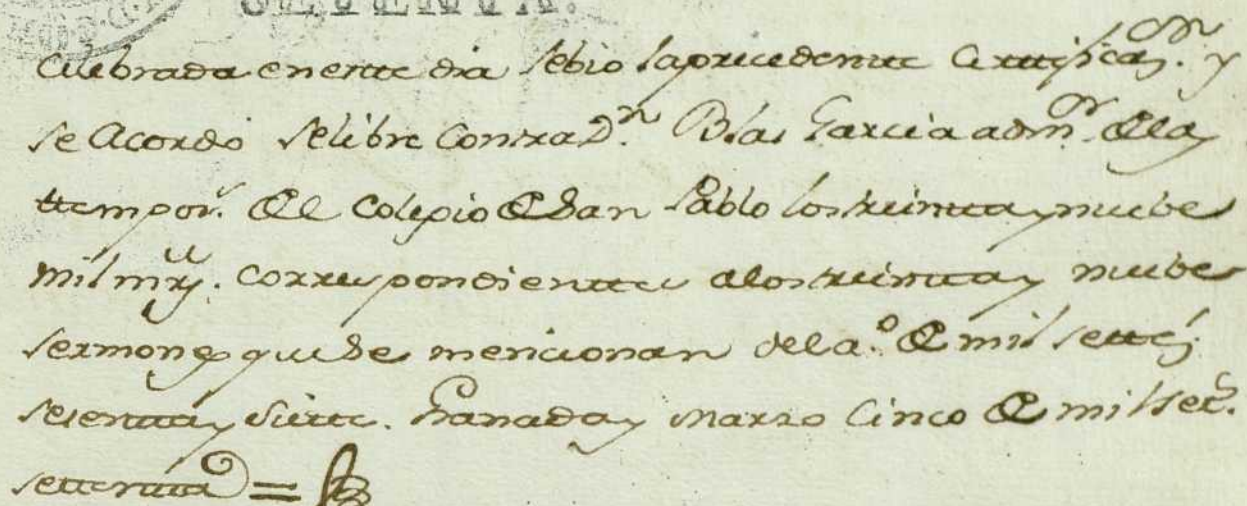 SETENTA.
Celebrada en este dia sebio la precedente Certificaz.on y
se Acordò selibre Contra D.n Blas Garcia adm.or dela
ttempor.s del Colegio de San Pablo los treinta y nuebe
mil mrs. correspondientes alos treinta y nuebe
sermones que se mencionan del a.o de mil settes.
sesenta y siette. Granada y Marzo Cinco de mil set.s
settenta =